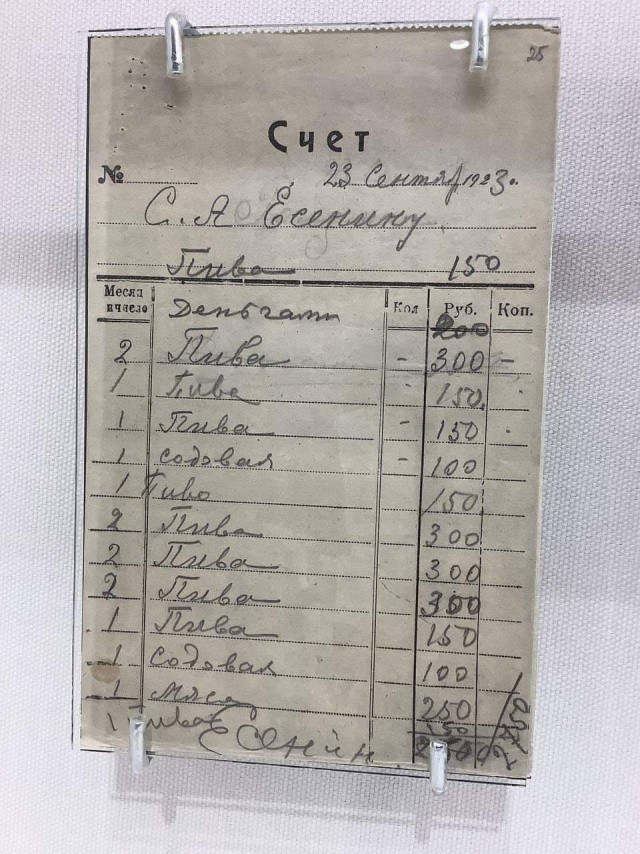 25
Счет
№ 23 Сентяб 1923 г.
С. А Есенину
Пива 150
Месяц и число Кол Руб. Коп.
Деньгами 200
2 Пива - 300 -
1 Пива - 150
1 Пива - 150
1 содовая - 100
1 Пиво 150
2 Пива 300
2 Пива 300
2 Пива 300
1 Пива 150
1 содовая 100
1 мясо 250
1 Пива 150
Есенин